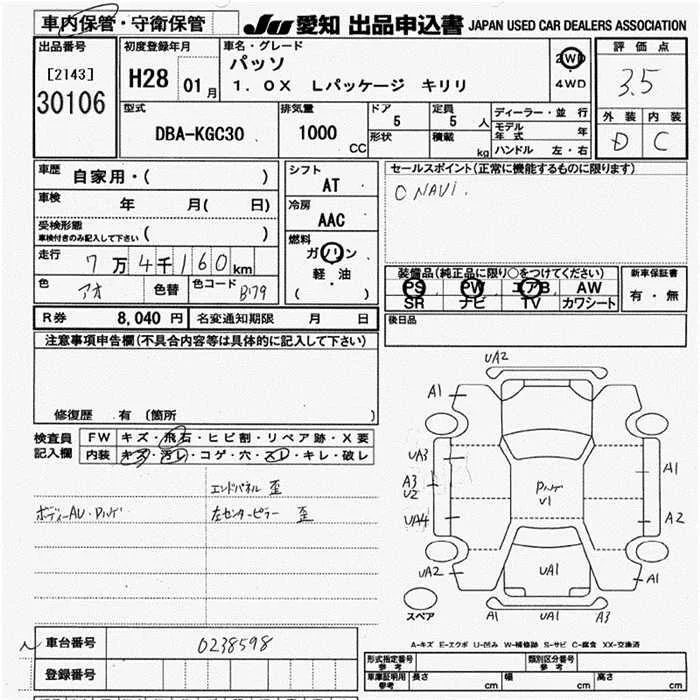 車内保管・守衛保管
JU 愛知 出品申込書 JAPAN USED CAR DEALERS ASSOCIATION
出品番号
[2143]
30106
初度登録年月
H28 01月
車名・グレード
パッソ
1.0X Lパッケージ キリリ
2WD
4WD
評価点
3.5
外装 内装
D C
型式
DBA-KGC30
排気量
1000
CC
ドア
5
形状
定員
5 人
積載
kg
ディーラー・並行
モデル年式 年
ハンドル 左・右
車歴
自家用・( )
車検
年 月( 日)
受検形態
車検付きのみ記入して下さい ( )
走行
7万4千160km
色
アオ
色替
色コード
B79
シフト
AT
冷房
AAC
燃料
ガソリン
軽・油
( )
セールスポイント(正常に機能するものに限ります)
○ NAVI.
装備品(純正品に限り○をつけてください)
PS PW エアB AW
SR ナビ TV カワシート
新車保証書
有・無
後日品
R券 8,040円 名変通知期限 月 日
注意事項申告欄(不具合内容等は具体的に記入して下さい)
修復歴 有 (箇所 )
検査員記入欄
FW キズ・飛石・ヒビ割・リペア跡・X要
内装 キズ・汚レ・コゲ・穴・スレ・キレ・破レ
エンドパネル 歪
ボディーAU・Pハゲ
左センターピラー 歪
UA2
A1
UA3
A3
U2
UA4
UA2
A1
A2
A1
Pハゲ
U1
UA1
A1 UA1 A3
スペア
A-キズ E-エクボ U-凹み W-補修跡 S-サビ C-腐食 XX-交換済
車台番号
0238598
登録番号
形式指定番号
参考
類別区分番号
参考
車庫証明用
参考
長さ cm 幅 cm 高さ cm